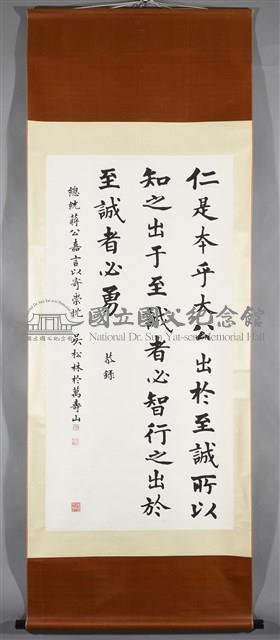 仁是本乎大公出於至誠所以
知之出于至誠者必智行之出於
至誠者必勇 恭錄
總統蔣公嘉言以寄崇忱 吳松林於萬壽山
國立國父紀念館
National Dr. Sun Yat-sen Memorial Hall